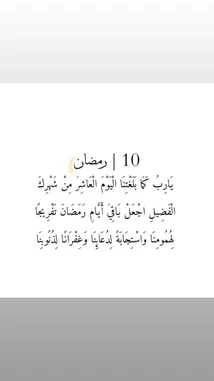 10 | رمضان
يَارِبُ كَمَا بَلَغْتِنَا الْيَوْمَ الْعَاشِرَ مِنْ شَهْرِكَ
الْفَضِيلِ اجْعَلْ بَاقِيَ أَيَّامِ رَمَضَانَ تَفْرِيجًا
لِهُمُومِنَا وَاسْتِجَابَةً لِدُعَايِنَا وَغِفْرَانًا لِذُنُوبِنَا